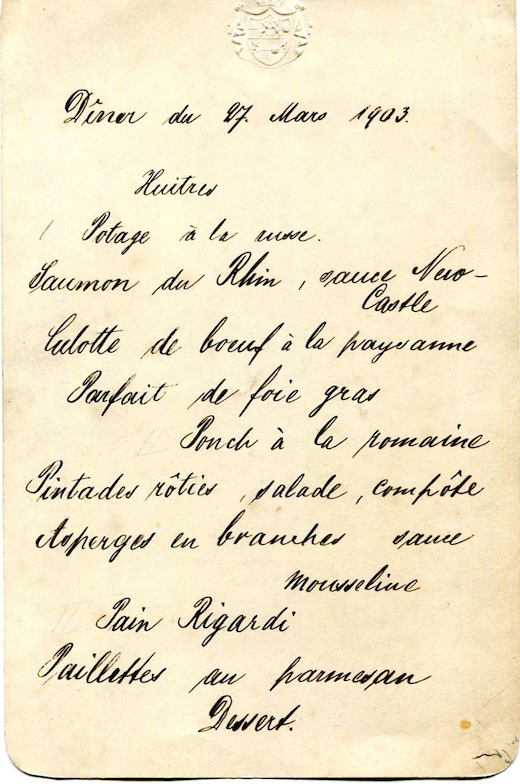 Dîner du 27. Mars 1903.
Huitres
Potage à la russe.
Saumon du Rhin, sauce New-
Castle
Culotte de boeuf à la paysanne
Parfait de foie gras
Ponch à la romaine
Pintades rôties, salade, compôte
Asperges en branches sauce
mousseline
Pain Rigardi
Paillettes au parmesan
Dessert.